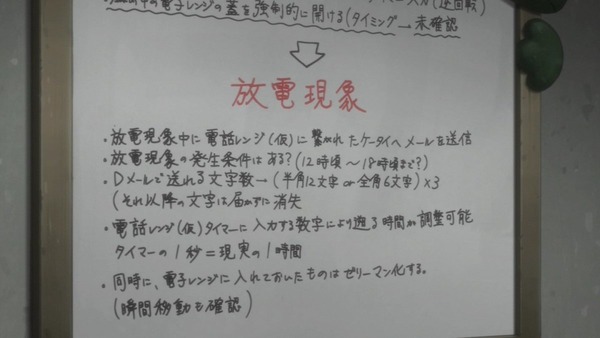 中の電子レンジの蓋を強制的に開ける(タイミング→未確認
放電現象
・放電現象中に電話レンジ(仮)に繋がれたケータイへメールを送信
・放電現象の発生条件はある?(12時頃~18時頃まで?)
・Dメールで送れる文字数→(半角12文字 or 全角6文字)×3
(それ以降の文字は届かずに消失
・電話レンジ(仮)タイマーに入力する数字により遡る時間が調整可能
タイマーの1秒=現実の1時間
・同時に、電子レンジに入れておいたものはゼリーマン化する。
(瞬間移動も確認)